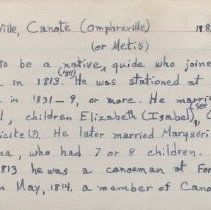 ville, Canote (Omphreville) 18
(or Metis)
to be a native guide who joine
(180)
in 1813. He was stationed at
in 1831-9, or more. He marri
l, children Elizabeth (Isabel), (see
icite(?). He later married Margueri
na, who had 7 or 8 children.
1813 he was a canoeman at For
n May, 1814, a member of Cano